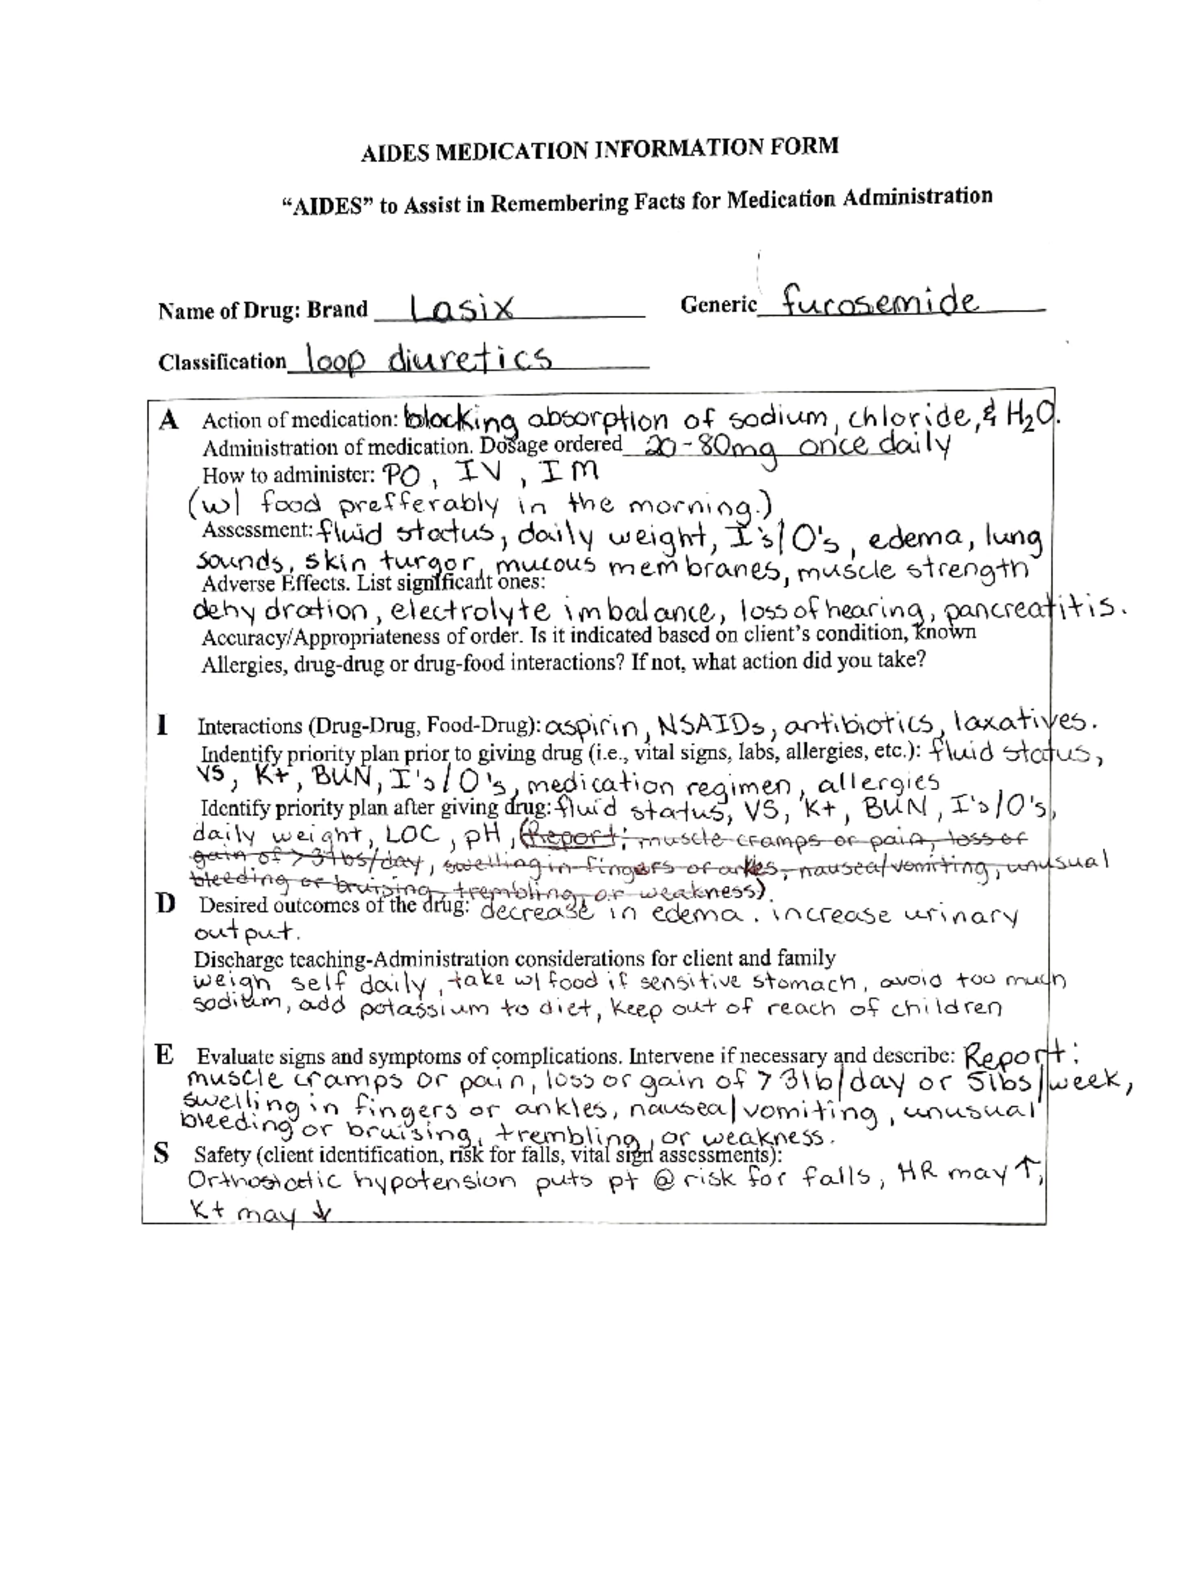 AIDES MEDICATION INFORMATION FORM
“AIDES” to Assist in Remembering Facts for Medication Administration
Name of Drug: Brand Lasix Generic furosemide
Classification loop diuretics
A Action of medication: blocking absorption of sodium, chloride, & H2O.
Administration of medication. Dosage ordered 20-80mg once daily
How to administer: PO, IV, IM
(w/ food prefferably in the morning.)
Assessment: fluid status, daily weight, I's/O's, edema, lung
sounds, skin turgor, mucous membranes, muscle strength
Adverse Effects. List significant ones:
dehydration, electrolyte imbalance, loss of hearing, pancreatitis.
Accuracy/Appropriateness of order. Is it indicated based on client’s condition, known
Allergies, drug-drug or drug-food interactions? If not, what action did you take?
I Interactions (Drug-Drug, Food-Drug): aspirin, NSAIDs, antibiotics, laxatives.
Indentify priority plan prior to giving drug (i.e., vital signs, labs, allergies, etc.): fluid status,
VS, K+, BUN, I's/O's, medication regimen, allergies
Identify priority plan after giving drug: fluid status, VS, K+, BUN, I's/O's,
daily weight, LOC, pH, (Report: muscle cramps or pain, loss or
gain of >3lbs/day, swelling in fingers or ankles, nausea/vomiting, unusual
bleeding or bruising, trembling, or weakness).
D Desired outcomes of the drug: decrease in edema. increase urinary
output.
Discharge teaching-Administration considerations for client and family
weigh self daily, take w/ food if sensitive stomach, avoid too much
sodium, add potassium to diet, keep out of reach of children
E Evaluate signs and symptoms of complications. Intervene if necessary and describe: Report:
muscle cramps or pain, loss or gain of >3lb/day or 5lbs/week,
swelling in fingers or ankles, nausea/vomiting, unusual
bleeding or bruising, trembling, or weakness.
S Safety (client identification, risk for falls, vital sign assessments):
Orthostatic hypotension puts pt @ risk for falls, HR may ↑,
K+ may ↓